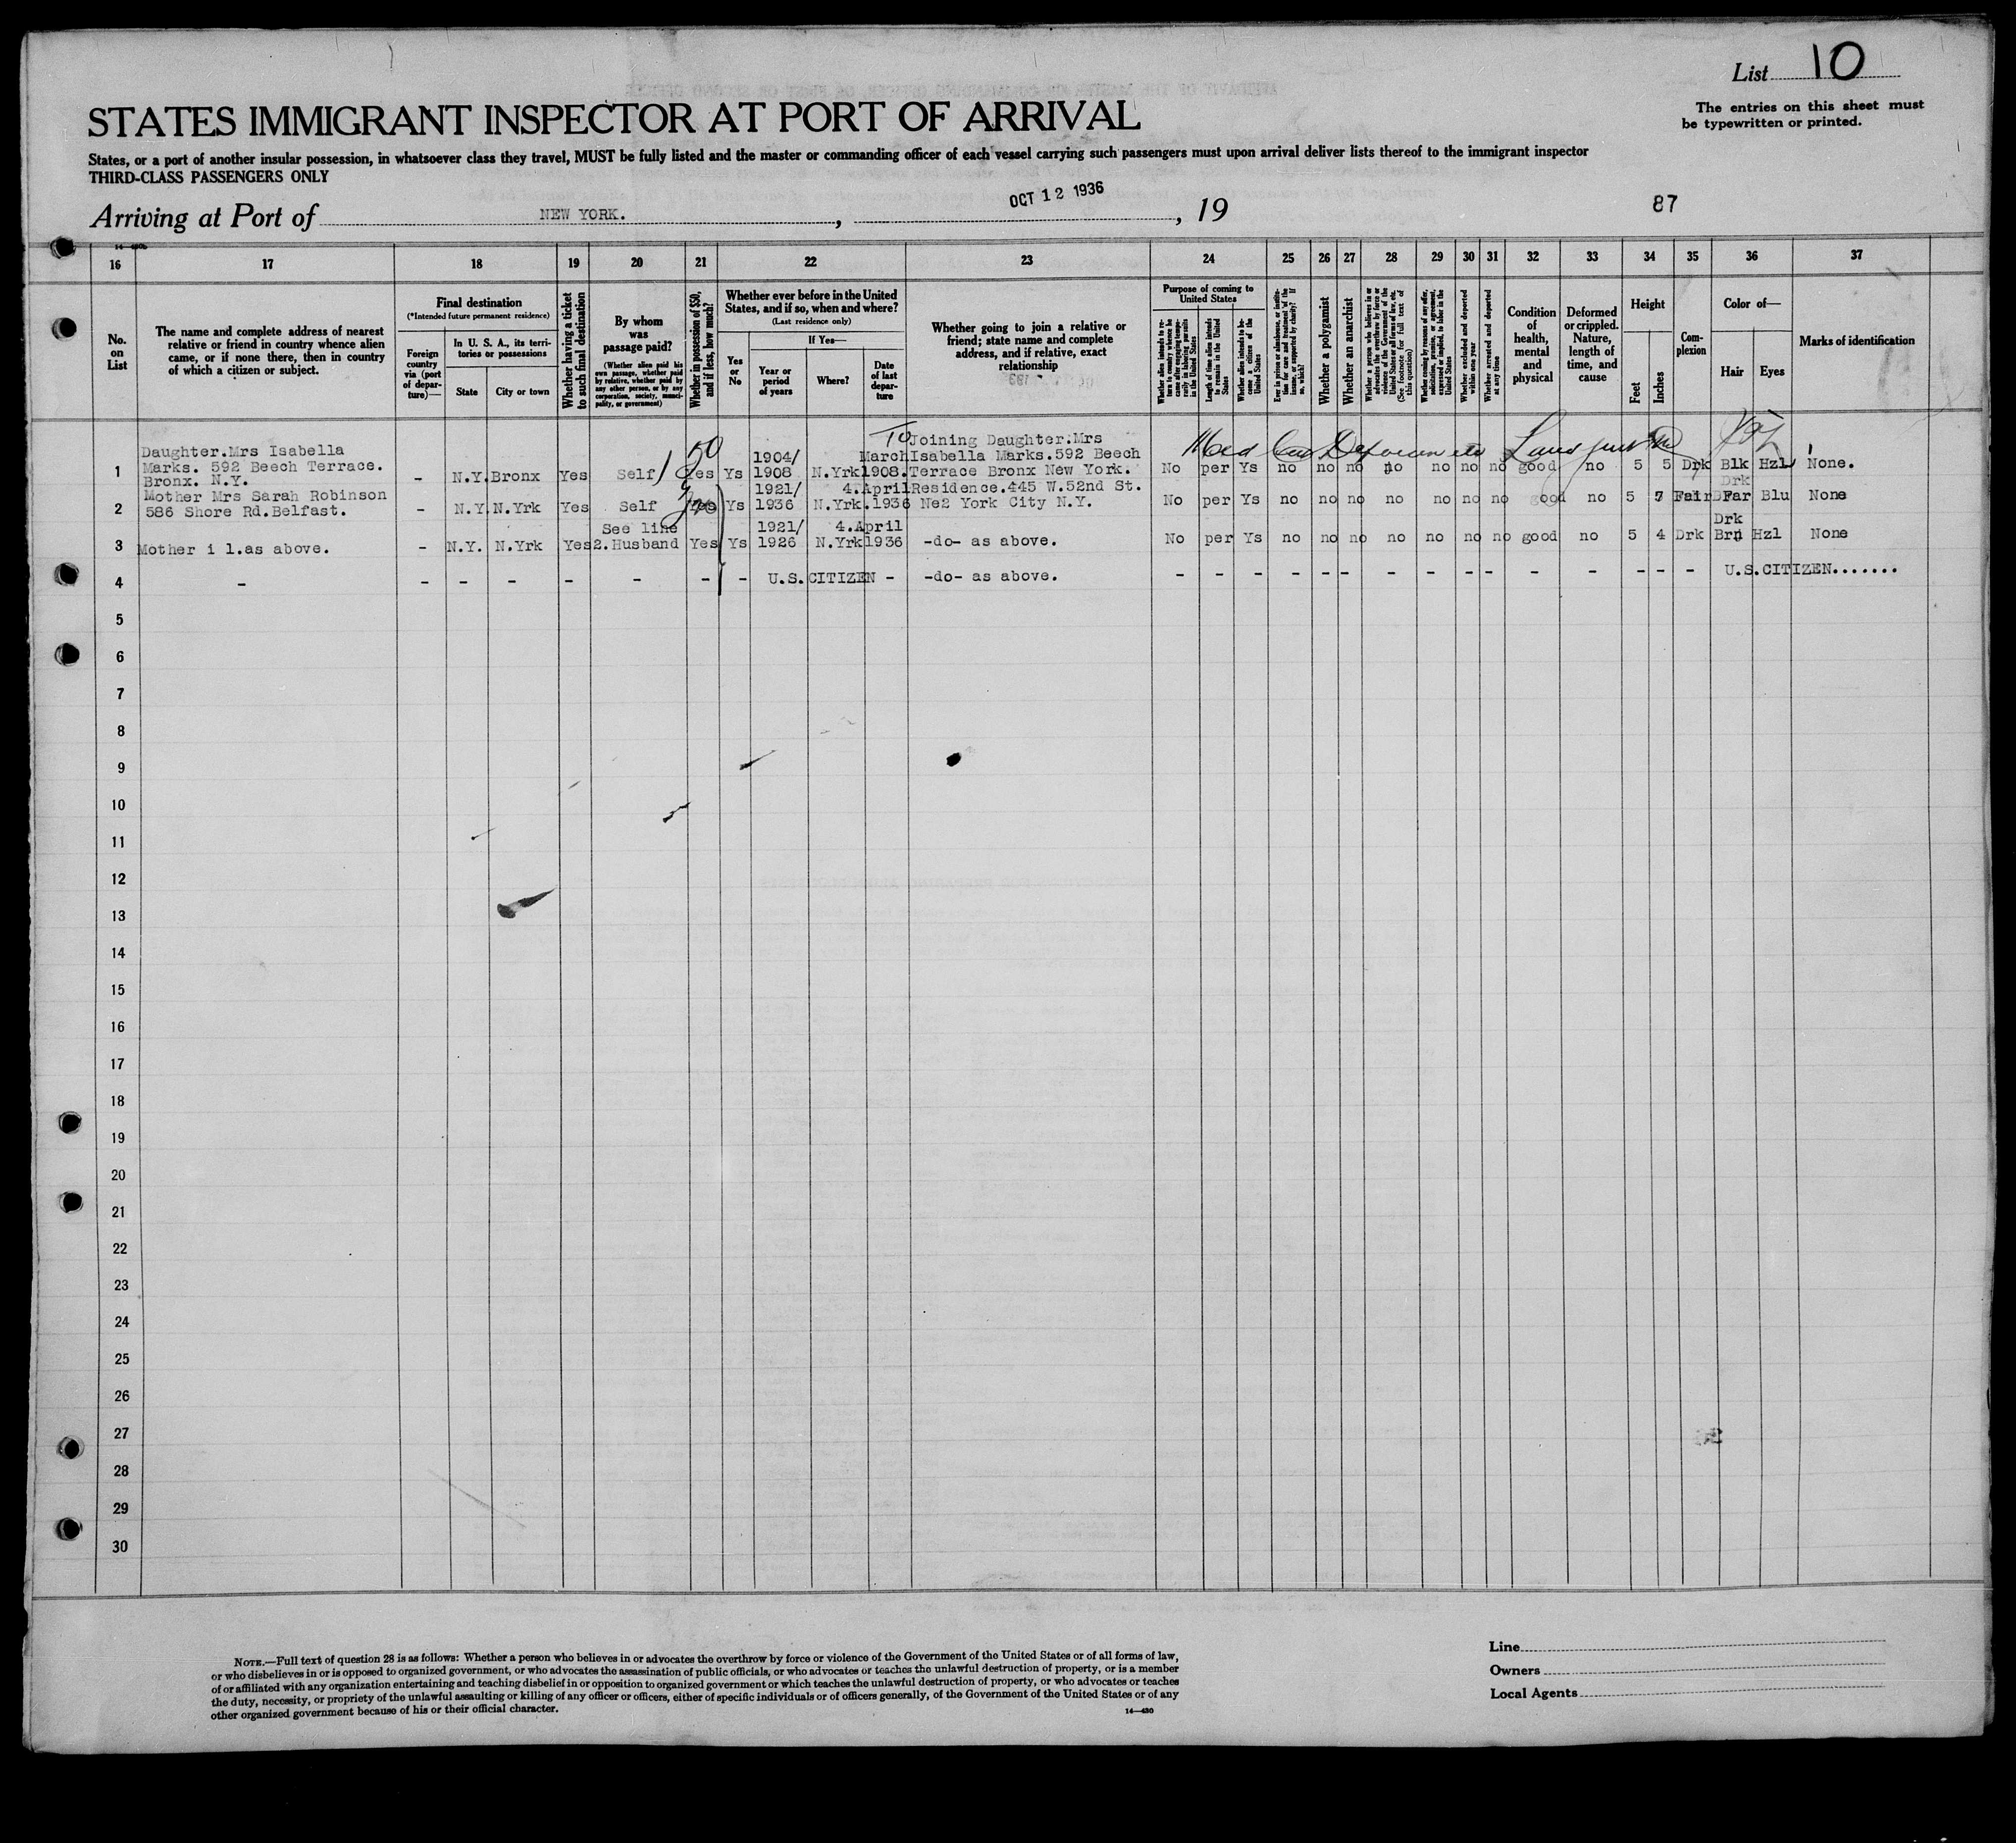 List 10
The entries on this sheet must
be typewritten or printed.
STATES IMMIGRANT INSPECTOR AT PORT OF ARRIVAL
States, or a port of another insular possession, in whatsoever class they travel, MUST be fully listed and the master or commanding officer of each vessel carrying such passengers must upon arrival deliver lists thereof to the immigrant inspector
THIRD-CLASS PASSENGERS ONLY
Arriving at Port of NEW YORK. , OCT 12 1936 , 19
87
16 17 18 19 20 21 22 23 24 25 26 27 28 29 30 31 32 33 34 35 36 37
No.
on
List
The name and complete address of nearest
relative or friend in country whence alien
came, or if none there, then in country
of which a citizen or subject.
Final destination
(*Intended future permanent residence)
Foreign
country
via (port
of depar-
ture)—
In U. S. A., its terri-
tories or possessions
State
City or town
Whether having a ticket
to such final destination
By whom
was
passage paid?
(Whether alien paid his
own passage, whether paid
by relative, whether paid by
any other person, or by any
corporation, society, munici-
pality, or government)
Whether in possession of $50,
and if less, how much?
Whether ever before in the United
States, and if so, when and where?
(Last residence only)
Yes
or
No
If Yes—
Year or
period
of years
Where?
Date
of last
depar-
ture
Whether going to join a relative or
friend; state name and complete
address, and if relative, exact
relationship
Purpose of coming to
United States
Whether alien intends to re-
turn to country whence he
came after engaging tempo-
rarily in laboring pursuits
in the United States
Length of time alien intends
to remain in the United
States
Whether alien intends to be-
come a citizen of the
United States
Ever in prison or almshouse, or institu-
tion for care and treatment of the
insane, or supported by charity? If
so, which?
Whether a polygamist
Whether an anarchist
Whether a person who believes in or
advocates the overthrow by force or
violence of the Government of the
United States or all forms of law, etc.
(See footnote for full text of
this question)
Whether coming by reasons of any offer,
solicitation, promise, or agreement,
expressed or implied, to labor in the
United States
Whether excluded and deported
within one year
Whether arrested and deported
at any time
Condition
of
health,
mental
and
physical
Deformed
or crippled.
Nature,
length of
time, and
cause
Height
Feet
Inches
Com-
plexion
Color of—
Hair
Eyes
Marks of identification
Daughter.Mrs Isabella To Joining Daughter.Mrs
Marks. 592 Beech Terrace. 50 1904/ March Isabella Marks.592 Beech
1 Bronx. N.Y. - N.Y. Bronx Yes Self Yes Ys 1908 N.Yrk 1908. Terrace Bronx New York. No per Ys no no no no no no no good no 5 5 Drk Blk Hzl None.
Mother Mrs Sarah Robinson 1921/ 4.April Residence.445 W.52nd St. Drk
2 586 Shore Rd.Belfast. - N.Y. N.Yrk Yes Self Ys 1936 N.Yrk. 1936 Ne2 York City N.Y. No per Ys no no no no no no no good no 5 7 Fair Blu None
See line 1921/ 4.April Drk
3 Mother i l.as above. - N.Y. N.Yrk Yes 2.Husband Yes Ys 1926 N.Yrk 1936 -do- as above. No per Ys no no no no no no no good no 5 4 Drk Brn Hzl None
4 - - - - - - - - U.S.CITIZEN - -do- as above. - - - - - - - - - - - - - - - U.S.CITIZEN.......
5
6
7
8
9
10
11
12
13
14
15
16
17
18
19
20
21
22
23
24
25
26
27
28
29
30
NOTE.—Full text of question 28 is as follows: Whether a person who believes in or advocates the overthrow by force or violence of the Government of the United States or of all forms of law,
or who disbelieves in or is opposed to organized government, or who advocates the assassination of public officials, or who advocates or teaches the unlawful destruction of property, or is a member
of or affiliated with any organization entertaining and teaching disbelief in or opposition to organized government or which teaches the unlawful destruction of property, or who advocates or teaches
the duty, necessity, or propriety of the unlawful assaulting or killing of any officer or officers, either of specific individuals or of officers generally, of the Government of the United States or of any
other organized government because of his or their official character.
14—430
Line
Owners
Local Agents